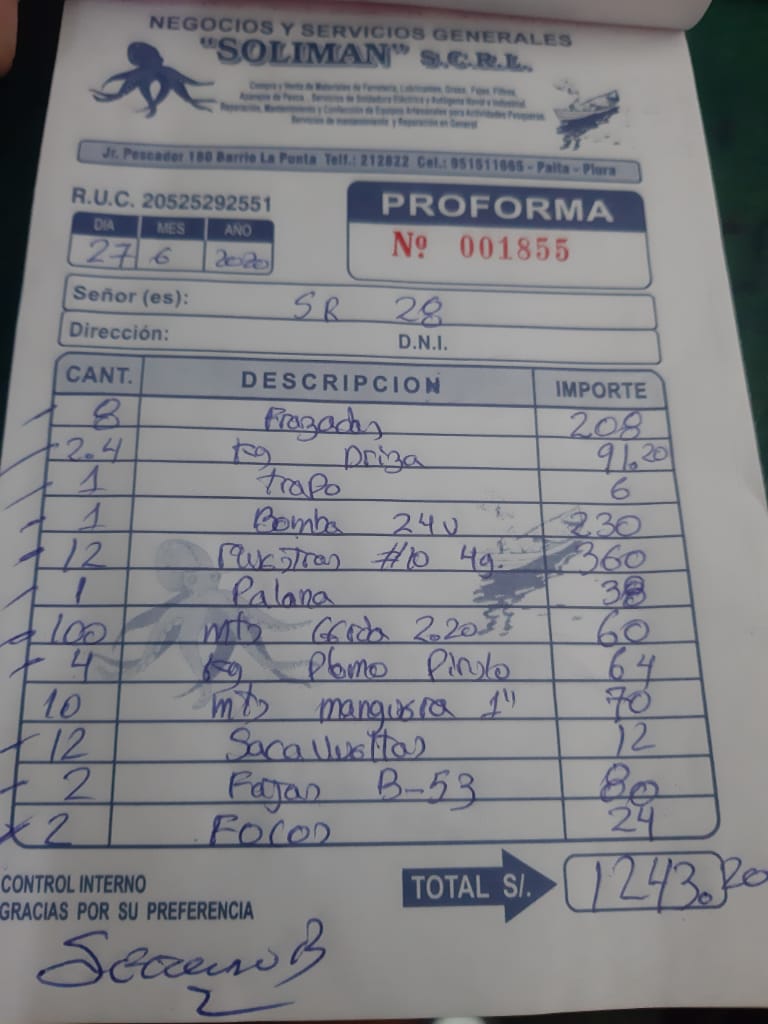 NEGOCIOS Y SERVICIOS GENERALES
"SOLIMAN" S.C.R.L.
Compra y Venta de Materiales de Ferretería, Lubricantes, Grasa, Fajas, Filtros,
Aparejos de Pesca, Servicios de Soldadura Eléctrica y Autógena Naval e Industrial.
Reparación, Mantenimiento y Confección de Equipos Artesanales para Actividades Pesqueras.
Servicios de mantenimiento y Reparación en General
Jr. Pescador 180 Barrio La Punta Telf.: 212822 Cel.: 951511665 - Paita - Piura
R.U.C. 20525292551
PROFORMA
Nº 001855
DIA MES AÑO
27 6 2020
Señor (es): SR 28
Dirección: D.N.I.
CANT. DESCRIPCION IMPORTE
8 Frazadas 208
2.4 kg Driza 91.20
1 trapo 6
1 Bomba 24v 230
12 #10 4g. 360
1 Palana 38
100 mts 2.20 60
4 kg Plomo Pirulo 64
10 mts manguera 1" 70
12 Sacavueltas 12
2 Fajas B-53 80
2 Focos 24
TOTAL S/. 1243.20
CONTROL INTERNO
GRACIAS POR SU PREFERENCIA